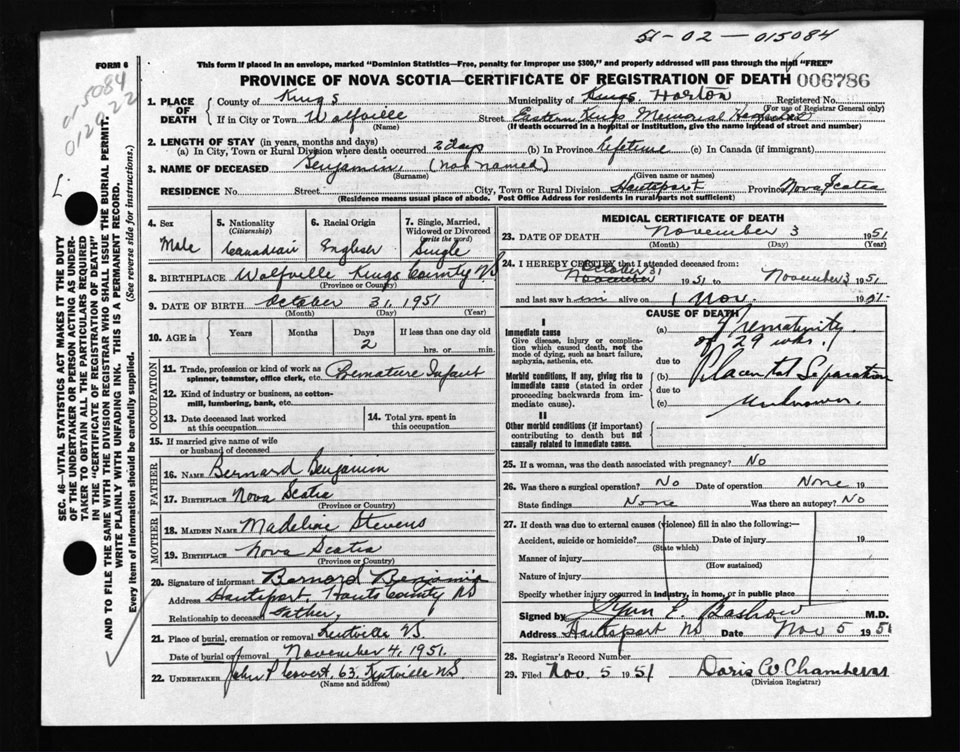 51-02-015084
FORM 6
This form if placed in an envelope, marked "Dominion Statistics—Free, penalty for improper use $300," and properly addressed will pass through the mail "FREE"
PROVINCE OF NOVA SCOTIA—CERTIFICATE OF REGISTRATION OF DEATH 006786
015084
22
1. PLACE OF DEATH
County of Kings Municipality of Kings Horton Registered No.
(For use of Registrar General only)
If in City or Town Wolfville Street Eastern Kings Memorial Hospital
(Name) (If death occurred in a hospital or institution, give the name instead of street and number)
2. LENGTH OF STAY (in years, months and days)
(a) In City, Town or Rural Division where death occurred 2 days (b) In Province lifetime (c) In Canada (if immigrant)
3. NAME OF DECEASED Benjamin (not named)
(Surname) (Given name or names)
RESIDENCE No. Street City, Town or Rural Division Hantsport Province Nova Scotia
(Residence means usual place of abode. Post Office Address for residents in rural parts not sufficient)
SEC. 46—VITAL STATISTICS ACT MAKES IT THE DUTY
OF THE UNDERTAKER OR PERSON ACTING AS UNDER-
TAKER TO OBTAIN ALL THE PARTICULARS REQUIRED
IN THE "CERTIFICATE OF REGISTRATION OF DEATH"
AND TO FILE THE SAME WITH THE DIVISION REGISTRAR WHO SHALL ISSUE THE BURIAL PERMIT.
WRITE PLAINLY WITH UNFADING INK. THIS IS A PERMANENT RECORD.
Every item of information should be carefully supplied. (See reverse side for instructions.)
4. Sex Male
5. Nationality (Citizenship) Canadian
6. Racial Origin English
7. Single, Married, Widowed or Divorced (write the word) Single
8. BIRTHPLACE Wolfville Kings County NS
(Province or Country)
9. DATE OF BIRTH October 31, 1951
(Month) (Day) (Year)
10. AGE in Years Months Days 2 If less than one day old
hrs. or min.
OCCUPATION
11. Trade, profession or kind of work as spinner, teamster, office clerk, etc. Premature Infant
12. Kind of industry or business, as cotton-mill, lumbering, bank, etc.
13. Date deceased last worked at this occupation
14. Total yrs. spent in this occupation
15. If married give name of wife or husband of deceased
FATHER
16. NAME Bernard Benjamin
17. BIRTHPLACE Nova Scotia
(Province or Country)
MOTHER
18. MAIDEN NAME Madeline Stevens
19. BIRTHPLACE Nova Scotia
(Province or Country)
20. Signature of informant Bernard Benjamin
Address Hantsport, Hants County NS
Relationship to deceased Father,
21. Place of burial, cremation or removal Kentville NS.
Date of burial or removal November 4, 1951.
22. UNDERTAKER John P 63, Kentville NS
(Name and address)
MEDICAL CERTIFICATE OF DEATH
23. DATE OF DEATH November 3 1951
(Month) (Day) (Year)
24. I HEREBY CERTIFY that I attended deceased from:
October 31
November 1951 to November 3 1951
and last saw him alive on 1 Nov. 1951.
CAUSE OF DEATH
I
Immediate cause
Give disease, injury or complication which caused death, not the mode of dying, such as heart failure, asphyxia, asthenia, etc.
(a) Prematurity
of 29 wks.
due to
Morbid conditions, if any, giving rise to immediate cause (stated in order proceeding backwards from immediate cause).
(b) Placental Separation
due to
(c) unknown.
II
Other morbid conditions (if important) contributing to death but not causally related to immediate cause.
25. If a woman, was the death associated with pregnancy? No
26. Was there a surgical operation? No Date of operation None 19
State findings None Was there an autopsy? No
27. If death was due to external causes (violence) fill in also the following:—
Accident, suicide or homicide? Date of injury 19
(State which)
Manner of injury
(How sustained)
Nature of injury
Specify whether injury occurred in industry, in home, or in public place
Signed by E. Bashow M.D.
Address Hantsport NS Date Nov 5 1951
28. Registrar's Record Number
29. Filed Nov. 5 1951 Doris W Chambers
(Division Registrar)